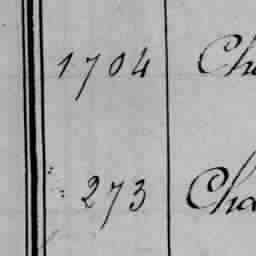 1704 Ch
273 Cha